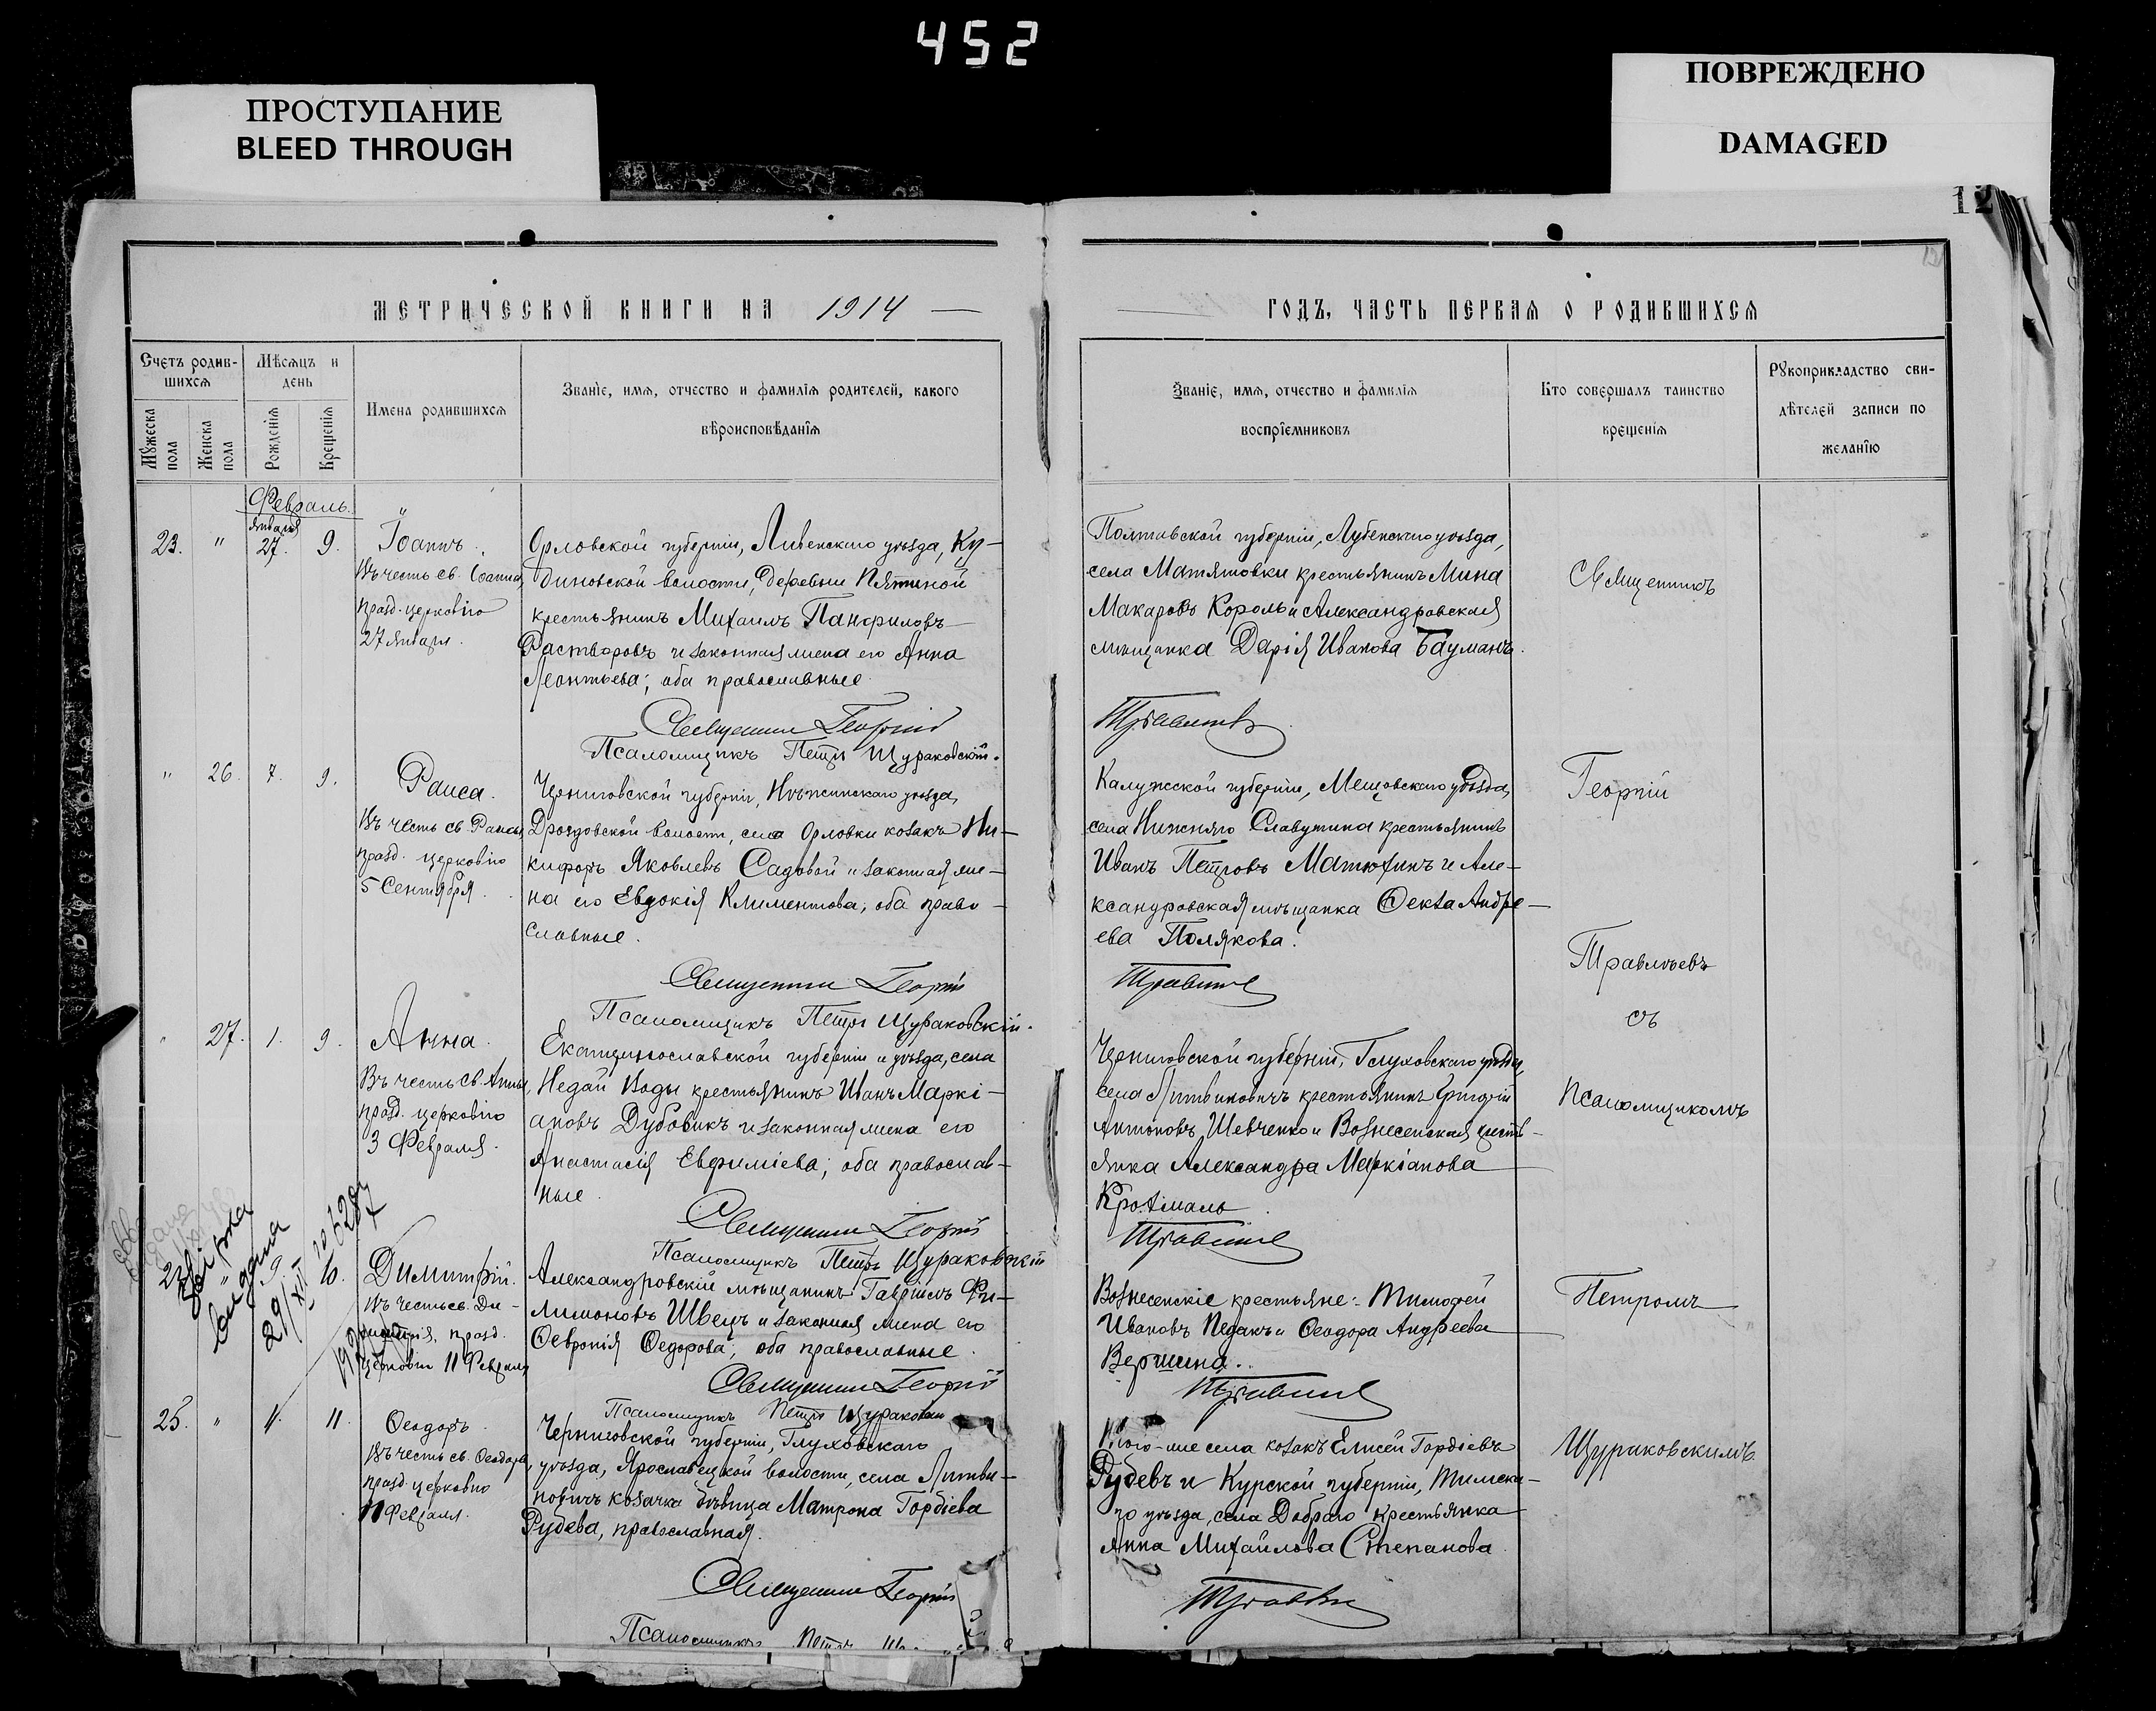 452
ПРОСТУПАНИЕ
BLEED THROUGH
ПОВРЕЖДЕНО
DAMAGED
12
МЕТРИЧЕСКОЙ КНИГИ НА 1914
ГОДЪ, ЧАСТЬ ПЕРВАЯ О РОДИВШИХСЯ
Счетъ родив-
шихся
Мѣсяцъ и
день
Мужеска
пола
Женска
пола
Рожденія
Крещенія
Имена родившихся
Званіе, имя, отчество и фамилія родителей, какого
вѣроисповѣданія
Званіе, имя, отчество и фамилія
воспріемниковъ
Кто совершалъ таинство
крещенія
Рукоприкладство сви-
дѣтелей записи по
желанію
Февраль.
23. " Января 27. 9.
Іоаннъ.
Въ честь св. Іоанна,
празд. церковію
27 Января.
Орловской губерніи, Ливенскаго уѣзда, Ку-
диновской волости, деревни Пятиной
крестьянинъ Михаилъ Панфиловъ
Растворовъ и законная жена его Анна
Леонтьева; оба православные.
Священникъ Георгій
Псаломщикъ Петръ Щураковскій.
Полтавской губерніи, Лубенскаго уѣзда,
села Матяшовки крестьянинъ Мина
Макаровъ Король и Александровская
мѣщанка Дарія Иванова Бауманъ.
Травлѣевъ
" 26. 7. 9.
Раиса.
Въ честь св. Раисы,
празд. церковію
5 Сентября.
Черниговской губерніи, Нѣжинскаго уѣзда,
Дроздовской волости, села Орловки козакъ Ни-
кифоръ Яковлевъ Садовой и законная же-
на его Евдокія Климентова; оба право-
славные.
Священникъ Георгій
Псаломщикъ Петръ Щураковскій.
Калужской губерніи, Мещовскаго уѣзда,
села Нижняго крестьянинъ
Иванъ Петровъ Матюхинъ и Але-
ксандровская мѣщанка Ѳекла Андре-
ева Полякова.
Травлѣевъ
" 27. 1. 9.
Анна.
Въ честь св. Анны,
празд. церковію
3 Февраля.
Екатеринославской губерніи и уѣзда, села
Недай Воды крестьянинъ Иванъ Маркі-
ановъ Дубовикъ и законная жена его
Анастасія Евфиміева; оба православ-
ные.
Священникъ Георгій
Псаломщикъ Петръ Щураковскій
Черниговской губерніи, Глуховскаго уѣзда,
села Литвиновичъ крестьянинъ Григорій
Антоновъ Шевченко и Вознесенская кресть-
янка Александра Маркіанова
Крохмаль.
Травлѣевъ
выдана
29/XII
Димитрій.
Въ честь св. Ди-
митрія, празд.
церковію 11 Февраля
Александровскій мѣщанинъ Гавріилъ Фи-
лимоновъ Швецъ и законная жена его
Ѳевронія Ѳедорова; оба православные.
Священникъ Георгій
Псаломщикъ Петръ Щураковскій
Вознесенскіе крестьяне: Тимофей
Ивановъ Педакъ и Ѳеодора Андреева
Вершина.
Травлѣевъ
25. " 4. 11.
Ѳеодоръ.
Въ честь св. Ѳеодора,
празд. церковію
11 Февраля.
Черниговской губерніи, Глуховскаго
уѣзда, Ярославецкой волости, села Литви-
новичъ козачка дѣвица Матрона Гордіева
Рудева, православная.
Священникъ Георгій
Псаломщикъ Петръ
Того-же села козакъ Елисей Гордіевъ
Рудевъ и Курской губерніи, Тимска-
го уѣзда, села Добраго крестьянка
Анна Михайлова Степанова.
Травлѣевъ
Священникъ
Георгій
Травлѣевъ
съ
псаломщикомъ
Петромъ
Щураковскимъ.